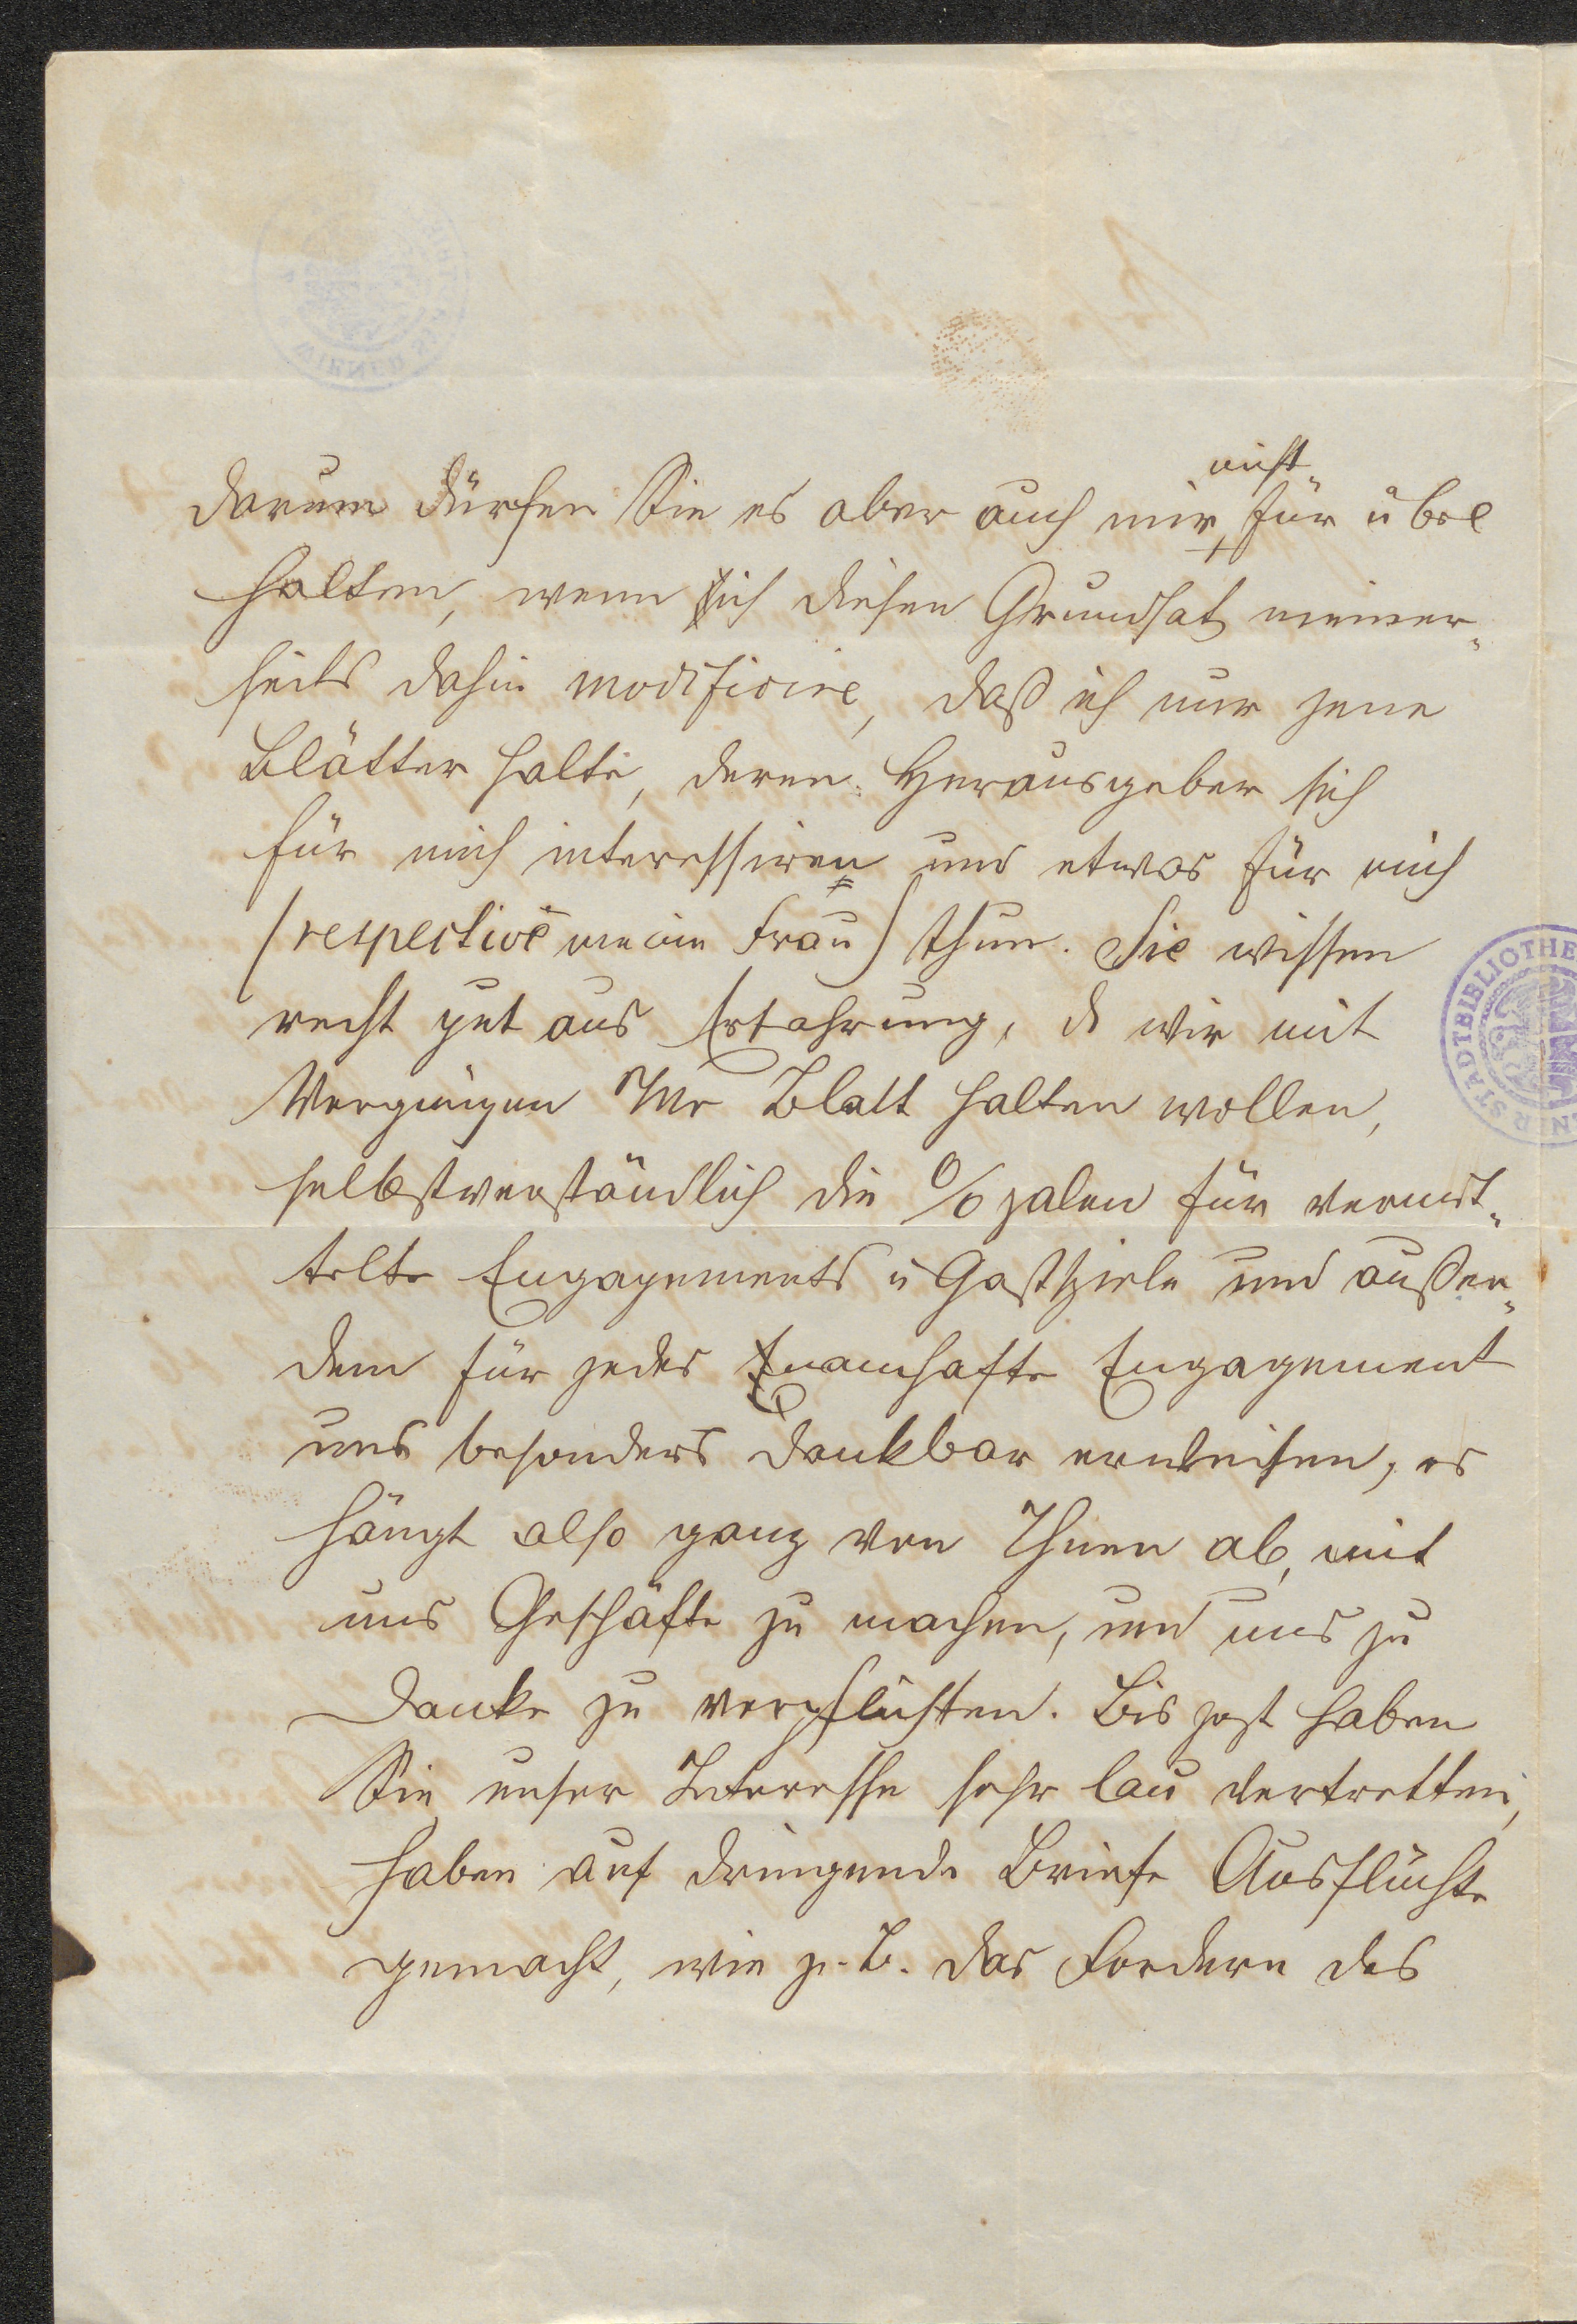 nicht
darum dürfen Sie es aber auch mir für übel
halten, wenn ich diesen Grundsatz meiner-
seits dahin modificire, daß ich nur jene
Blätter halte, deren Herausgeber sich
für mich interessiren und etwas für mich
(respective meine Frau) thun. Sie wissen
recht gut aus Erfahrung, ds wir mit
Vergnügen Ihr Blatt halten wollen,
selbstverständlich die % zalen für vermit-
telte Engagements u Gastspiele und außer-
dem für jedes namhafte Engagement
uns besonders dankbar erweisen, es
hängt also ganz von Ihnen ab, mit
uns Geschäfte zu machen, und uns zu
Danke zu verpflichten. Bis jezt haben
Sie unser Interesse sehr lau vertretten,
haben auf dringende Briefe Ausflüchte
gemacht, wie z. B. das Fordern des
STADTBIBLIOTHE